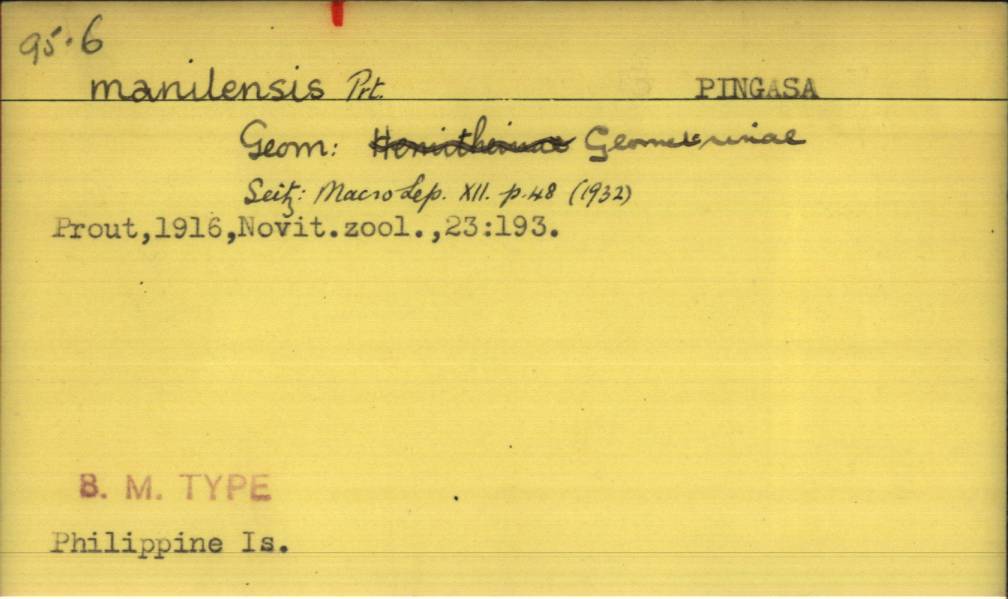 95.6
manilensis Prt. PINGASA
Geom: Hemitheinae Geometrinae
Seitz: Macro Lep. XII. p.48 (1932)
Prout,1916,Novit.zool.,23:193.
B. M. TYPE
Philippine Is.